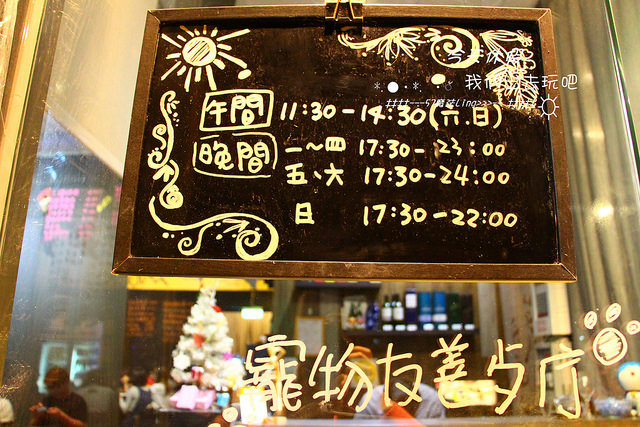 午間 11:30-14:30(六.日)
晚間 一~四 17:30-23:00
五、六 17:30-24:00
日 17:30-22:00
寵物友善